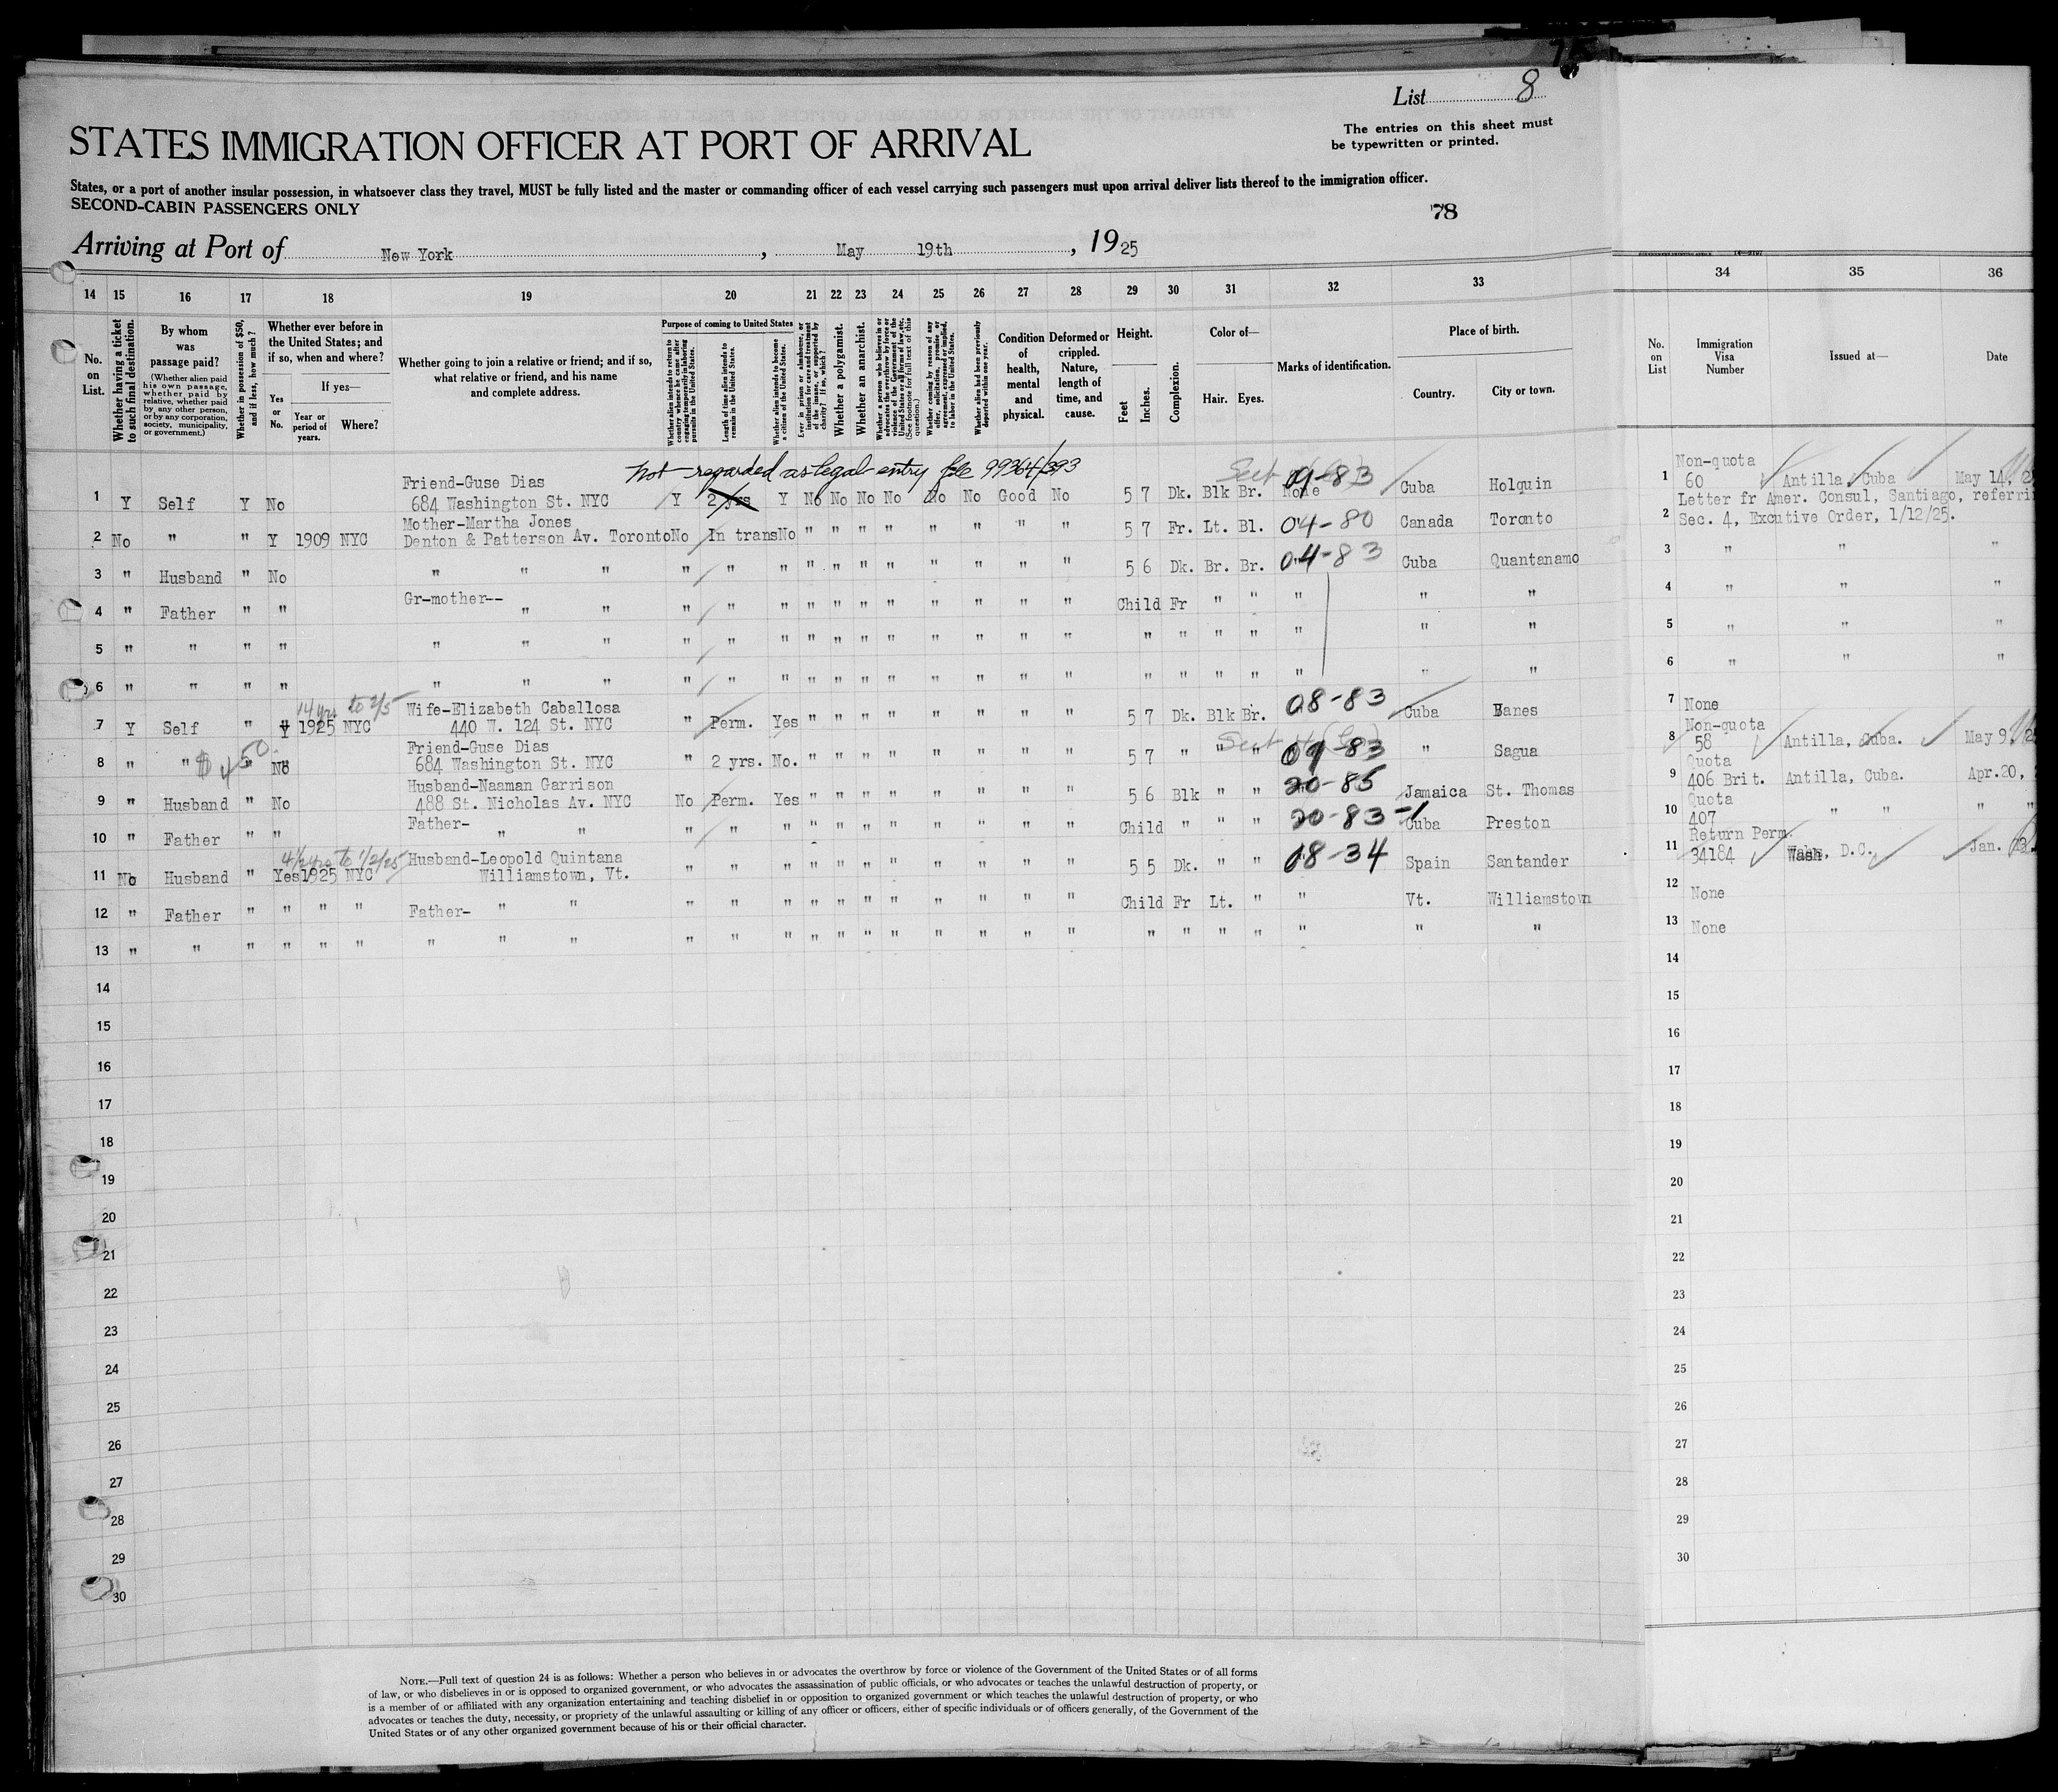 List 8
STATES IMMIGRATION OFFICER AT PORT OF ARRIVAL
The entries on this sheet must
be typewritten or printed.
States, or a port of another insular possession, in whatsoever class they travel, MUST be fully listed and the master or commanding officer of each vessel carrying such passengers must upon arrival deliver lists thereof to the immigration officer.
SECOND-CABIN PASSENGERS ONLY
78
Arriving at Port of New York, May 19th, 1925
14 15 16 17 18 19 20 21 22 23 24 25 26 27 28 29 30 31 32 33 34 35 36
No. on List.
Whether having a ticket to such final destination.
By whom was passage paid?
(Whether alien paid his own passage, whether paid by relative, whether paid by any other person, or by any corporation, society, municipality, or government.)
Whether in possession of $50, and if less, how much?
Whether ever before in the United States; and if so, when and where?
Yes or No.
If yes—
Year or period of years.
Where?
Whether going to join a relative or friend; and if so, what relative or friend, and his name and complete address.
Purpose of coming to United States
Whether alien intends to return to country whence he came after engaging temporarily in laboring pursuits in the United States.
Length of time alien intends to remain in the United States.
Whether alien intends to become a citizen of the United States.
Ever in prison or almshouse, or institution for care and treatment of the insane, or supported by charity? If so, which?
Whether a polygamist.
Whether an anarchist.
Whether a person who believes in or advocates the overthrow by force or violence of the Government of the United States or all forms of law, etc. (See footnote for full text of this question.)
Whether coming by reason of any offer, solicitation, promise or agreement, expressed or implied, to labor in the United States.
Whether alien had been previously deported within one year.
Condition of health, mental and physical.
Deformed or crippled. Nature, length of time, and cause.
Height.
Feet Inches.
Complexion.
Color of—
Hair. Eyes.
Marks of identification.
Place of birth.
Country. City or town.
No. on List
Immigration Visa Number
Issued at—
Date
Not regarded as legal entry file 99364/393
Friend-Guse Dias
1 Y Self Y No 684 Washington St. NYC Y 2 yrs Y No No No No No No Good No 5 7 Dk. Blk Br. None 09-83 Cuba Holquin
Mother-Martha Jones
2 No " " Y 1909 NYC Denton & Patterson Av. Toronto No In trans No " " " " " " " " 5 7 Fr. Lt. Bl. 04-80 Canada Toronto
3 " Husband " No " " " " " " " " " " " " " " 5 6 Dk. Br. Br. 04-83 Cuba Quantanamo
4 " Father " " Gr-mother-- " " " " " " " " " " " " " Child Fr " " " " "
5 " " " " " " " " " " " " " " " " " " " " " " " " "
6 " " " " " " " " " " " " " " " " " " " " " " " " "
14 yrs to 2/5 Wife-Elizabeth Caballosa
7 Y Self " Y 1925 NYC 440 W. 124 St. NYC " Perm. Yes " " " " " " " " 5 7 Dk. Blk Br. 08-83 Cuba Banes
Friend-Guse Dias
8 " " $450 " No 684 Washington St. NYC " 2 yrs. No. " " " " " " " " 5 7 " " " 09-83 " Sagua
Husband-Naaman Garrison
9 " Husband " No 488 St. Nicholas Av. NYC No Perm. Yes " " " " " " " " 5 6 Blk " " 20-85 Jamaica St. Thomas
10 " Father " " Father- " " " " " " " " " " " " " Child " " " 20-83-1 Cuba Preston
4 1/2 yrs to 1/2/25 Husband-Leopold Quintana
11 No Husband " Yes 1925 NYC Williamstown, Vt. " " " " " " " " " " " 5 5 Dk. " " 08-34 Spain Santander
12 " Father " " " " Father- " " " " " " " " " " " " " Child Fr Lt. " " Vt. Williamstown
13 " " " " " " " " " " " " " " " " " " " " " " " " " " "
14
15
16
17
18
19
20
21
22
23
24
25
26
27
28
29
30
Non-quota
1 60 Antilla, Cuba May 14, 2
Letter fr Amer. Consul, Santiago, referri
2 Sec. 4, Excutive Order, 1/12/25.
3 " " "
4 " " "
5 " " "
6 " " "
7 None
Non-quota
8 58 Antilla, Cuba. May 9, 2
Quota
9 406 Brit. Antilla, Cuba. Apr.20,
Quota
10 407 " " " "
Return Perm.
11 34184 Wash, D.C. Jan.
12 None
13 None
14
15
16
17
18
19
20
21
22
23
24
25
26
27
28
29
30
NOTE.—Full text of question 24 is as follows: Whether a person who believes in or advocates the overthrow by force or violence of the Government of the United States or of all forms
of law, or who disbelieves in or is opposed to organized government, or who advocates the assassination of public officials, or who advocates or teaches the unlawful destruction of property, or
is a member of or affiliated with any organization entertaining and teaching disbelief in or opposition to organized government or which teaches the unlawful destruction of property, or who
advocates or teaches the duty, necessity, or propriety of the unlawful assaulting or killing of any officer or officers, either of specific individuals or of officers generally, of the Government of the
United States or of any other organized government because of his or their official character.